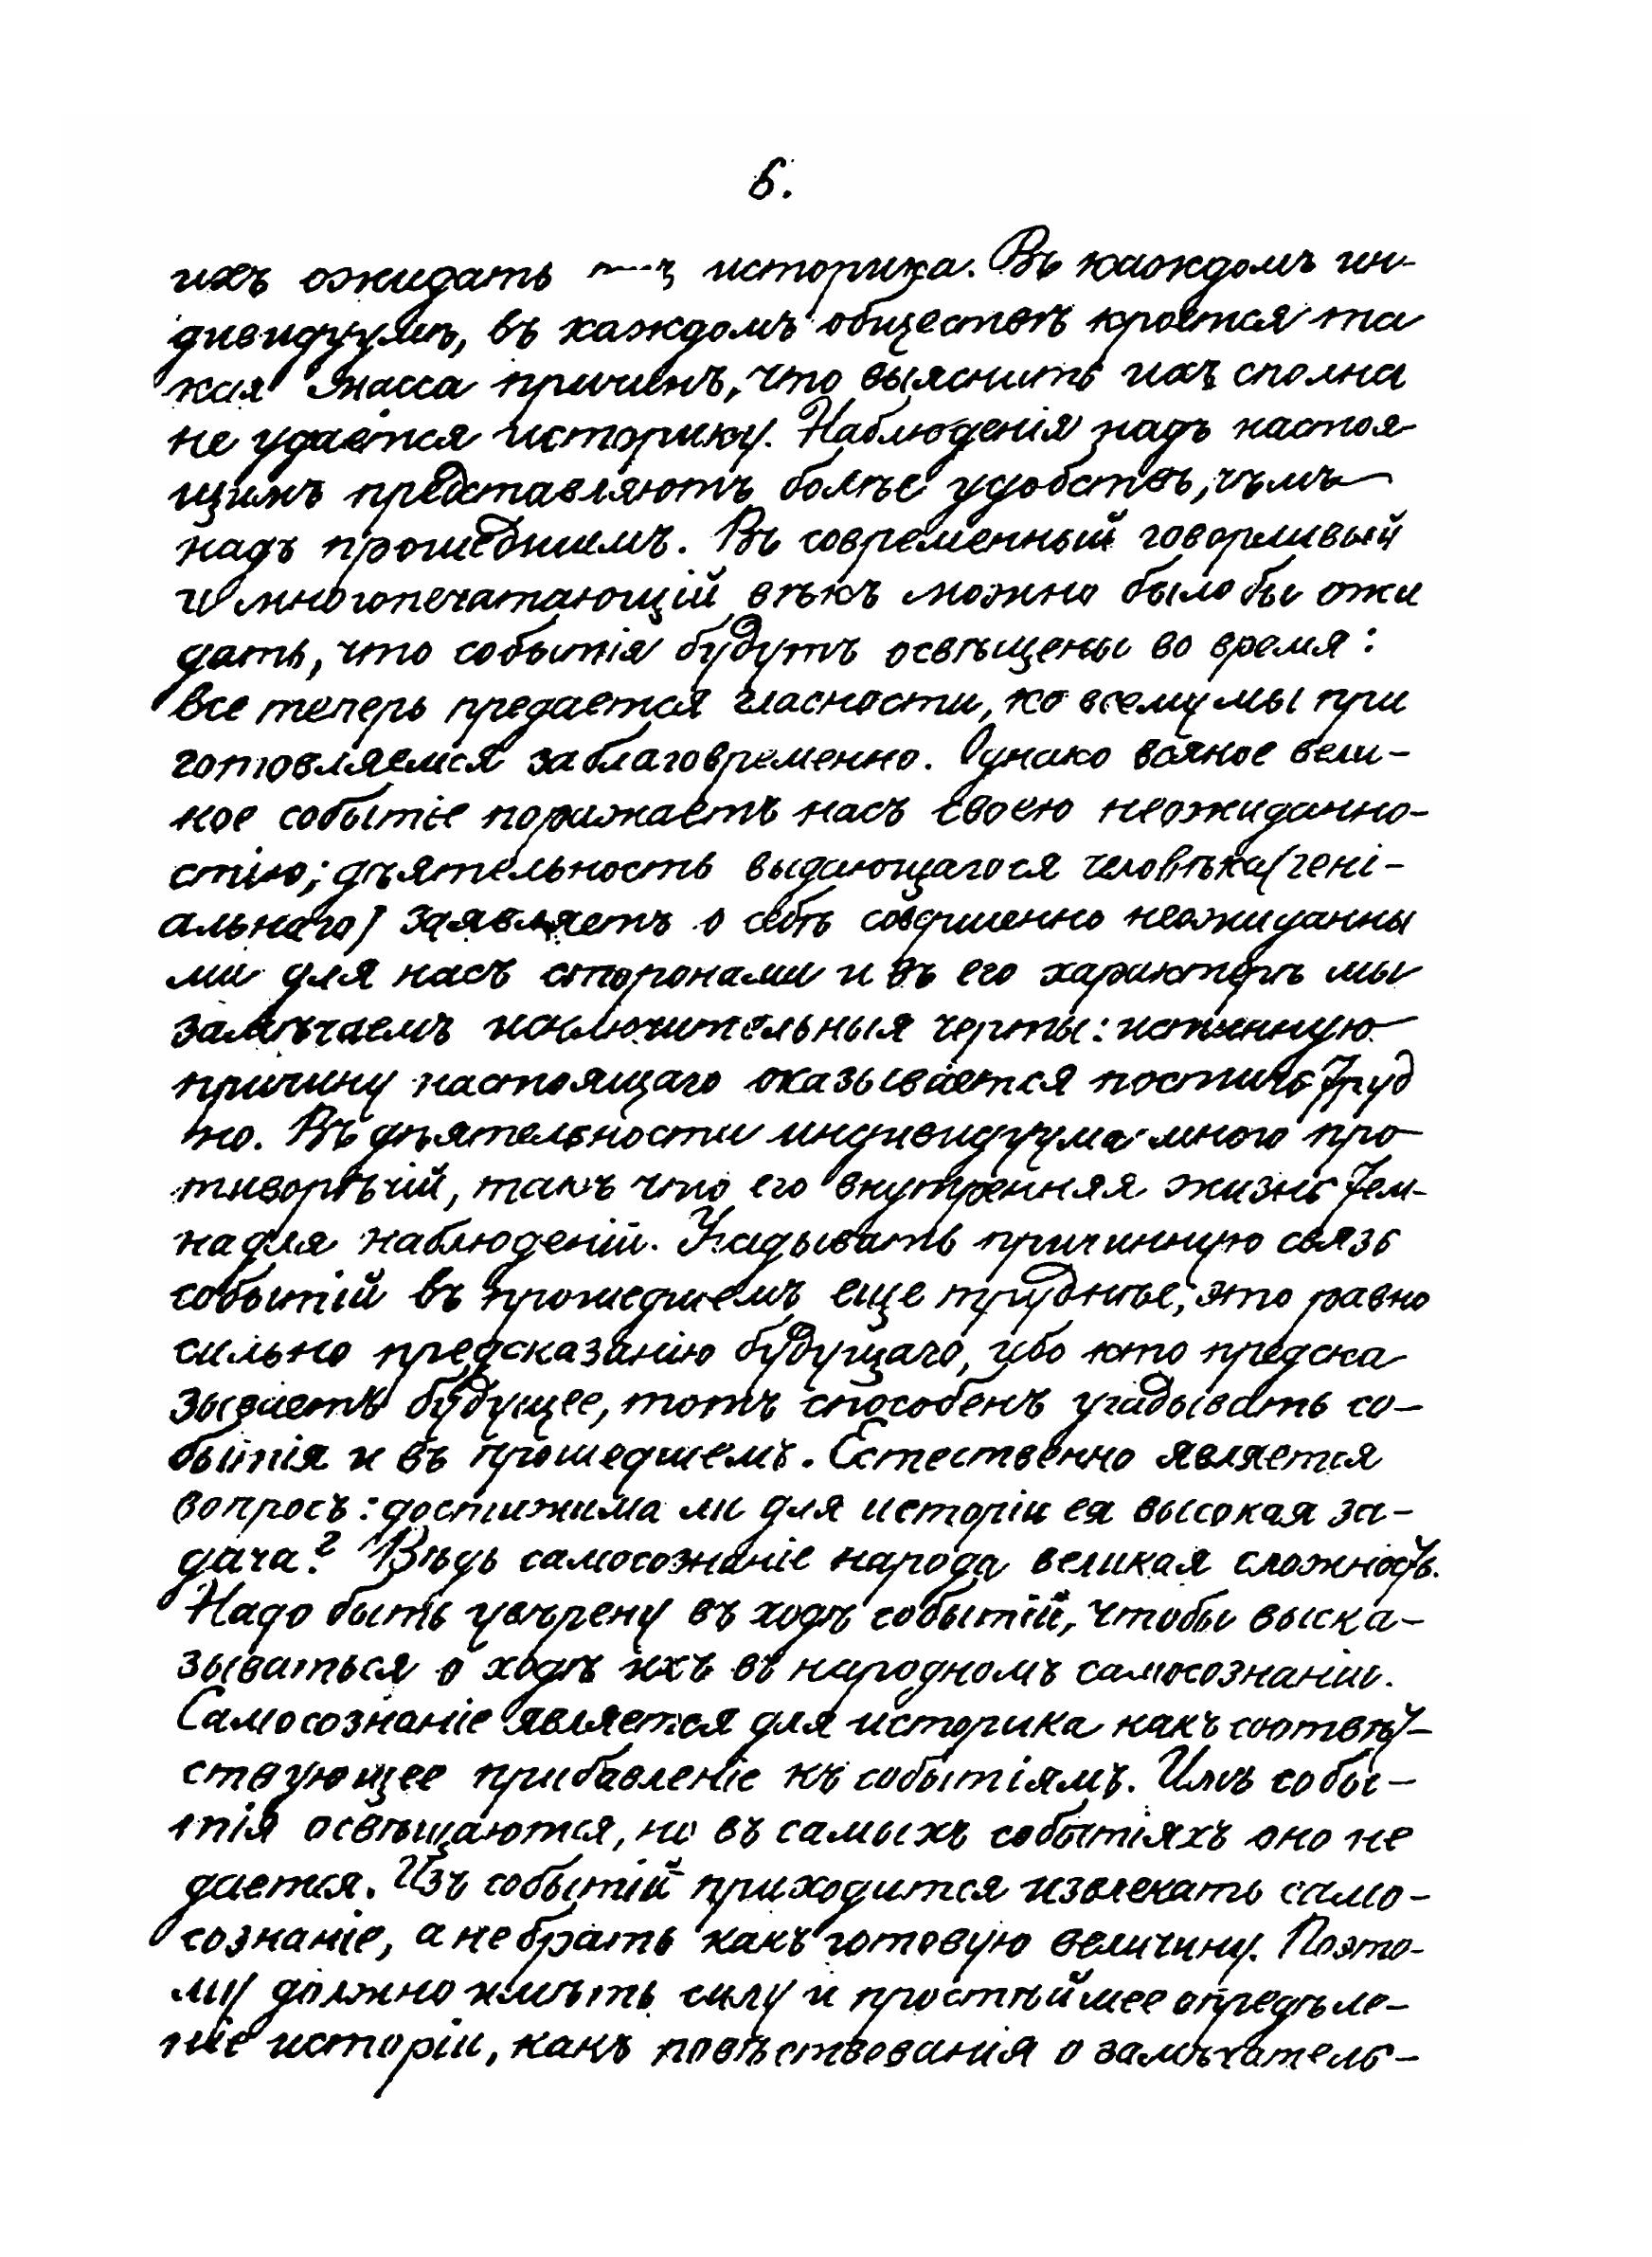 6.
ихъ ожидать историка. Въ каждомъ ин-
дивидуумѣ, въ каждомъ обществѣ кроется та
кая масса причинъ, что выяснить ихъ сполна
не удается историку. Наблюденія надъ настоя-
щимъ представляютъ болѣе удобствъ, чѣмъ
надъ прошедшимъ. Въ современный говорливый
и многопечатающій вѣкъ можно было бы ожи
дать, что событія будутъ освѣщены во время:
все теперь предается гласности, ко всему мы при
готовляемся заблаговременно. Однако всякое вели-
кое событіе поражаетъ насъ своею неожиданно-
стію; дѣятельность выдающагося человѣка (гені-
альнаго) заявляетъ о себѣ совершенно неожиданны
ми для насъ сторонами и въ его характерѣ мы
замѣчаемъ исключительныя черты: истинную
причину настоящаго оказывается постичь труд
но. Въ дѣятельности индивидуума много про
тиворѣчій, такъ что его внутренняя жизнь тем-
на для наблюденій. Угадывать причинную связь
событій въ прошедшемъ еще труднѣе, это равно
сильно предсказанію будущаго, ибо кто предска
зываетъ будущее, тотъ способенъ угадывать со-
бытія и въ прошедшемъ. Естественно является
вопросъ: достижима ли для исторіи ея высокая за-
дача? Вѣдь самосознаніе народа великая сложность.
Надо быть увѣрену въ ходѣ событій, чтобы выска-
зываться о ходѣ ихъ въ народномъ самосознаніи.
Самосознаніе является для историка какъ соотвѣт-
ствующее прибавленіе къ событіямъ. Имъ собы-
тія освѣщаются, но въ самыхъ событіяхъ оно не
дается. Изъ событій приходится извлекать само-
сознаніе, а не брать какъ готовую величину. Поэто-
му должно имѣть силу и простѣйшее опредѣле-
ніе исторіи, какъ повѣствованія о замѣчатель-